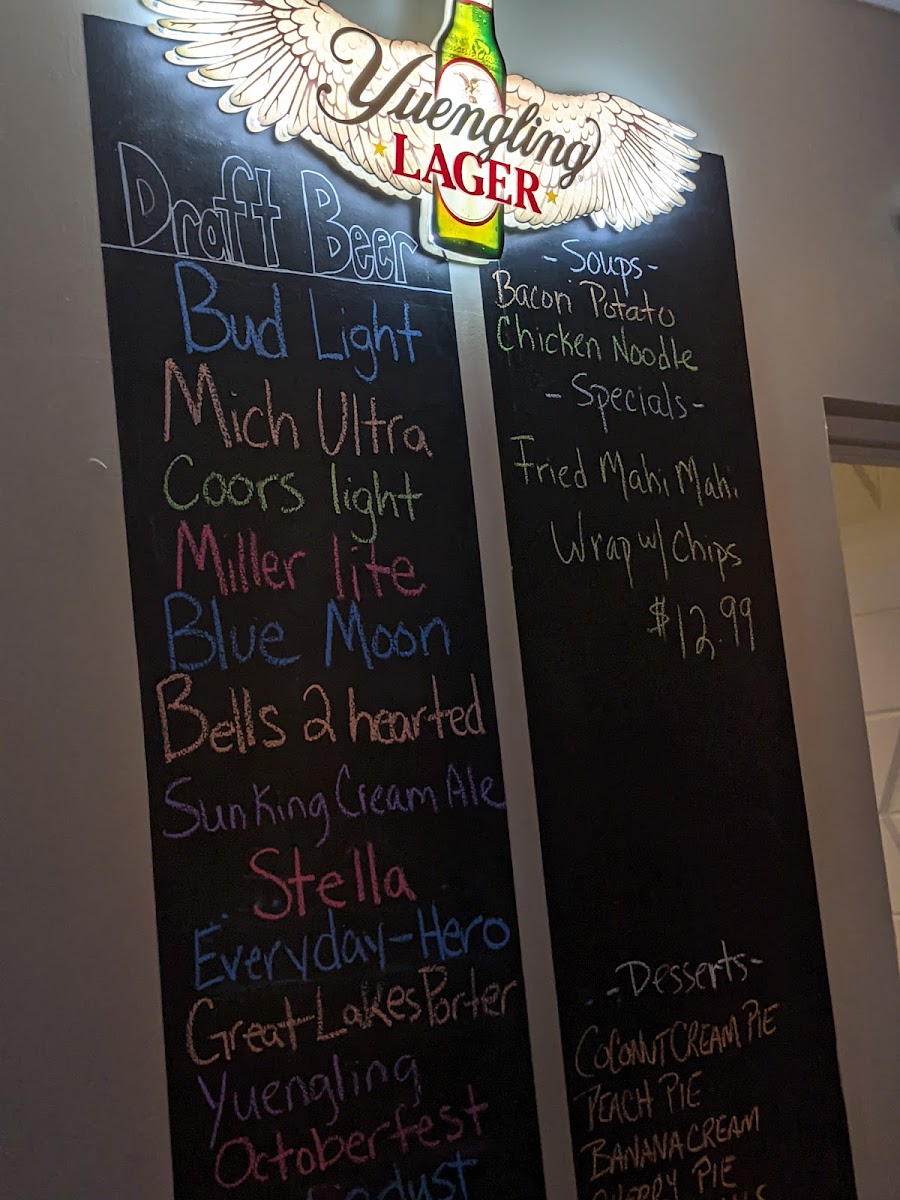 Yuengling
LAGER
Draft Beer
Bud Light
Mich Ultra
Coors light
Miller lite
Blue Moon
Bells 2 hearted
Sun King Cream Ale
Stella
Everyday-Hero
Great Lakes Porter
Yuengling
Octoberfest
-Soups-
Bacon Potato
Chicken Noodle
-Specials-
Fried Mahi Mahi
Wrap w/ chips
$12.99
-Desserts-
COCONUT CREAM PIE
PEACH PIE
BANANA CREAM
PIE